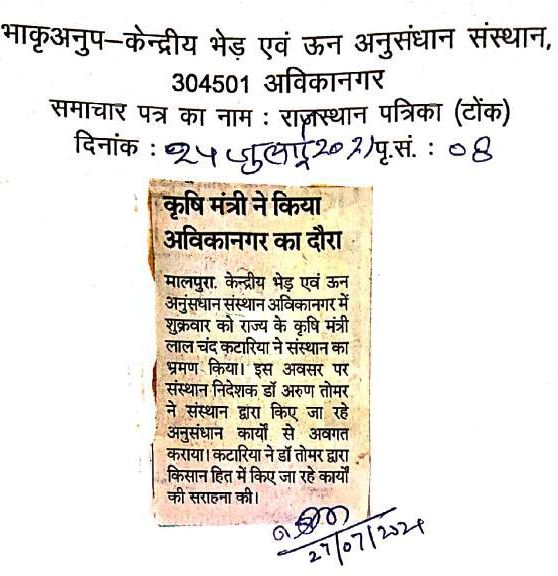 भाकृअनुप–केन्द्रीय भेड़ एवं ऊन अनुसंधान संस्थान,
304501 अविकानगर
समाचार पत्र का नाम : राजस्थान पत्रिका (टोंक)
दिनांक : २५ जुलाई 2021 पृ.सं. : ०८
कृषि मंत्री ने किया
अविकानगर का दौरा
मालपुरा. केन्द्रीय भेड़ एवं ऊन
अनुंसधान संस्थान अविकानगर में
शुक्रवार को राज्य के कृषि मंत्री
लाल चंद कटारिया ने संस्थान का
भ्रमण किया। इस अवसर पर
संस्थान निदेशक डॉ अरुण तोमर
ने संस्थान द्वारा किए जा रहे
अनुसंधान कार्यो से अवगत
कराया। कटारिया ने डॉ तोमर द्वारा
किसान हित में किए जा रहे कार्यों
की सराहना की।
27/07/2021